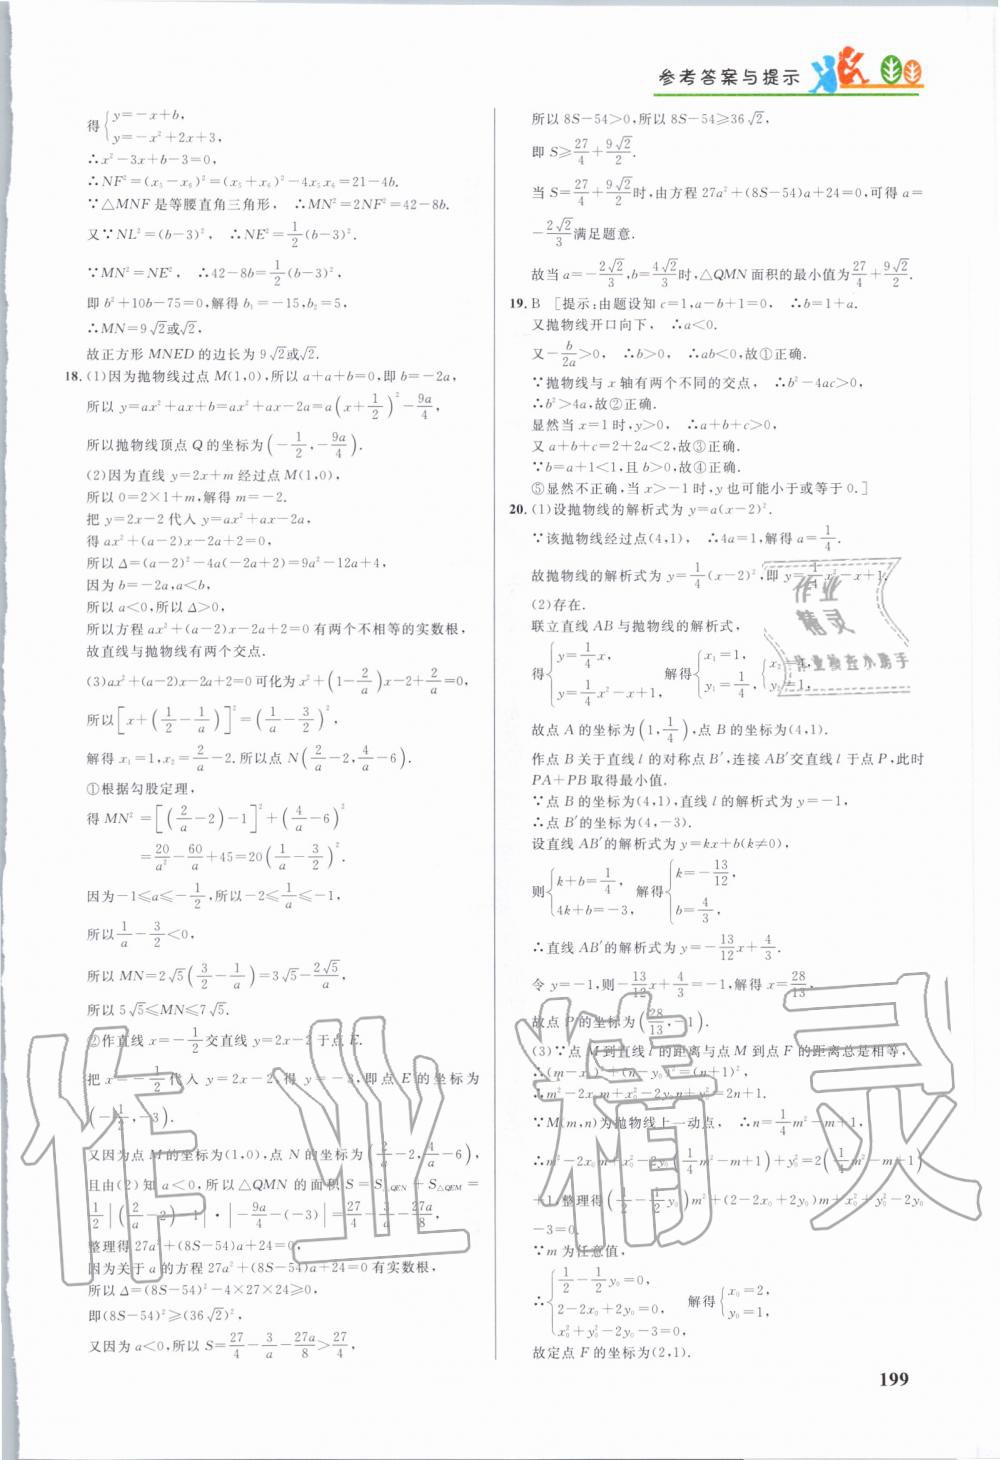 参考答案与提示
得{y=-x+b,
y=-x²+2x+3,
∴x²-3x+b-3=0,
∴NF²=(x₅-x₆)²=(x₅+x₆)²-4x₅x₆=21-4b.
∵△MNF是等腰直角三角形, ∴MN²=2NF²=42-8b.
又∵NL²=(b-3)², ∴NE²=1/2(b-3)².
∵MN²=NE², ∴42-8b=1/2(b-3)²,
即b²+10b-75=0,解得b₁=-15,b₂=5,
∴MN=9√2或√2,
故正方形MNED的边长为9√2或√2.
18.(1)因为抛物线过点M(1,0),所以a+a+b=0,即b=-2a,
所以y=ax²+ax+b=ax²+ax-2a=a(x+1/2)²-9a/4,
所以抛物线顶点Q的坐标为(-1/2,-9a/4).
(2)因为直线y=2x+m经过点M(1,0),
所以0=2×1+m,解得m=-2.
把y=2x-2代入y=ax²+ax-2a,
得ax²+(a-2)x-2a+2=0,
所以Δ=(a-2)²-4a(-2a+2)=9a²-12a+4,
因为b=-2a,a<b,
所以a<0,所以Δ>0,
所以方程ax²+(a-2)x-2a+2=0有两个不相等的实数根,
故直线与抛物线有两个交点.
(3)ax²+(a-2)x-2a+2=0可化为x²+(1-2/a)x-2+2/a=0,
所以[x+(1/2-1/a)]²=(1/a-3/2)²,
解得x₁=1,x₂=2/a-2.所以点N(2/a-2,4/a-6).
①根据勾股定理,
得MN²=[(2/a-2)-1]²+(4/a-6)²
=20/a²-60/a+45=20(1/a-3/2)².
因为-1≤a≤-1/2,所以-2≤1/a≤-1,
所以1/a-3/2<0,
所以MN=2√5(3/2-1/a)=3√5-2√5/a,
所以5√5≤MN≤7√5.
②作直线x=-1/2交直线y=2x-2于点E.
把x=-1/2代入y=2x-2,得y=-3,即点E的坐标为
(-1/2,-3).
又因为点M的坐标为(1,0),点N的坐标为(2/a-2,4/a-6),
且由(2)知a<0,所以△QMN的面积S=S△QEN+S△QEM=
1/2|(2/a-2)-1|·|-9a/4-(-3)|=27/4-3/a-27a/8,
整理得27a²+(8S-54)a+24=0,
因为关于a的方程27a²+(8S-54)a+24=0有实数根,
所以Δ=(8S-54)²-4×27×24≥0,
即(8S-54)²≥(36√2)²,
又因为a<0,所以S=27/4-3/a-27a/8>27/4,
所以8S-54>0,所以8S-54≥36√2,
即S≥27/4+9√2/2.
当S=27/4+9√2/2时,由方程27a²+(8S-54)a+24=0,可得a=
-2√2/3满足题意.
故当a=-2√2/3,b=4√2/3时,△QMN面积的最小值为27/4+9√2/2.
19.B [提示:由题设知c=1,a-b+1=0, ∴b=1+a.
又抛物线开口向下, ∴a<0.
又-b/2a>0, ∴b>0, ∴ab<0,故①正确.
∵抛物线与x轴有两个不同的交点, ∴b²-4ac>0,
∴b²>4a,故②正确.
显然当x=1时,y>0, ∴a+b+c>0,
又a+b+c=2+2a<2,故③正确.
∵b=a+1<1,且b>0,故④正确.
⑤显然不正确,当x>-1时,y也可能小于或等于0.]
20.(1)设抛物线的解析式为y=a(x-2)².
∵该抛物线经过点(4,1), ∴4a=1,解得a=1/4.
故抛物线的解析式为y=1/4(x-2)²,即y=1/4x²-x+1.
(2)存在.
联立直线AB与抛物线的解析式,
得{y=1/4x,
y=1/4x²-x+1, 解得{x₁=1,
y₁=1/4, {x₂=4,
y₂=1,
故点A的坐标为(1,1/4),点B的坐标为(4,1).
作点B关于直线l的对称点B′,连接AB′交直线l于点P,此时
PA+PB取得最小值.
∵点B的坐标为(4,1),直线l的解析式为y=-1,
∴点B′的坐标为(4,-3).
设直线AB′的解析式为y=kx+b(k≠0),
则{k+b=1/4,
4k+b=-3, 解得{k=-13/12,
b=4/3,
∴直线AB′的解析式为y=-13/12x+4/3.
令y=-1,则-13/12x+4/3=-1,解得x=28/13,
故点P的坐标为(28/13,-1).
(3)∵点M到直线l的距离与点M到点F的距离总是相等,
∴(m-x₀)²+(n-y₀)²=(n+1)²,
∴m²-2x₀m+x₀²-2y₀n+y₀²=2n+1.
∵M(m,n)为抛物线上一动点, ∴n=1/4m²-m+1,
∴m²-2x₀m+x₀²-2y₀(1/4m²-m+1)+y₀²=2(1/4m²-m+1)
+1.整理得(1/2-1/2y₀)m²+(2-2x₀+2y₀)m+x₀²+y₀²-2y₀
-3=0.
∵m为任意值,
∴{1/2-1/2y₀=0,
2-2x₀+2y₀=0,
x₀²+y₀²-2y₀-3=0, 解得{x₀=2,
y₀=1,
故定点F的坐标为(2,1).
199
作业
精灵
作业检查小助手
作业精灵